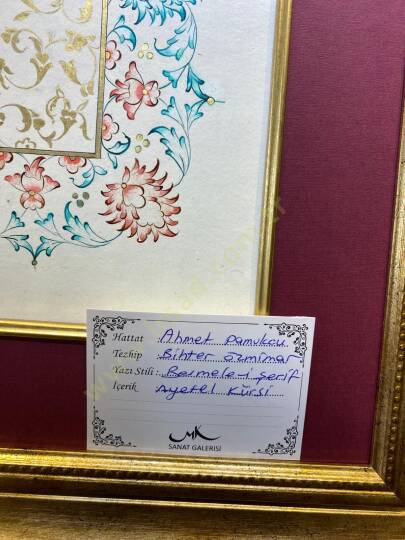 Hattat : Ahmet Pamukcu
Tezhip : Bihter Özmimar
Yazı Stili : Besmele-i Şerif
İçerik : Ayetel Kürsi
MK
SANAT GALERİSİ